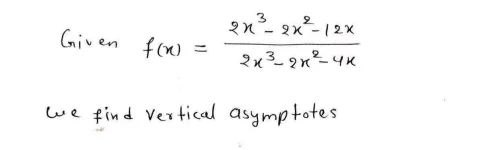 Given f(x) = (2x³ - 2x² - 12x) / (2x³ - 2x² - 4x)
we find vertical asymptotes